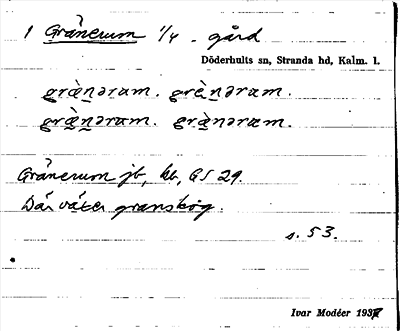 1 Gränerum 1/4 - gård
Döderhults sn, Stranda hd, Kalm. l.
grä̀nəram. grè̀nəram.
grä̀nəram. grä̀nəram.
Gränerum jb, kb, GS 29.
Där växer granskog.
s. 53.
Ivar Modéer 1937